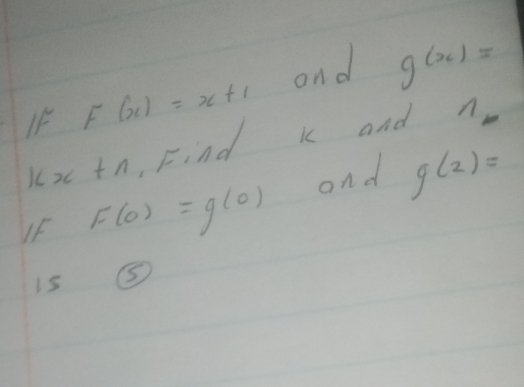 IF F(x) = x+1 and g(x) =
kx + n, Find k and n
IF F(0) = g(0) and g(2) =
is 5